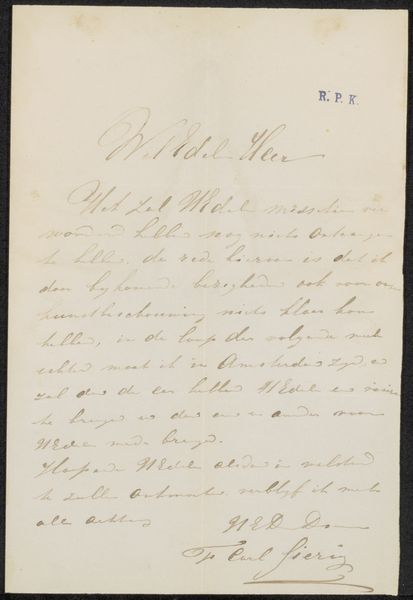 R. P. K.
WelEdele Heer
Het zal UEdele misschien ver
wonderd hebben nog niets ontvangen
te hebben, de rede hiervan is dat ik
door bijkomende bezigheden ook voor onze
kunstbeschouwing niets klaar kon
hebben, in de loop der volgende week
echter moet ik in Amsterdam zijn en
zal dan de eer hebben UEdele een visite
te brengen en dan een en ander voor
UEdele mede brengen.
Hopende UEdele alsdan in welstand
te zullen ontmoeten, verblijf ik met
alle achting
UED Dn
F Carl Sierig